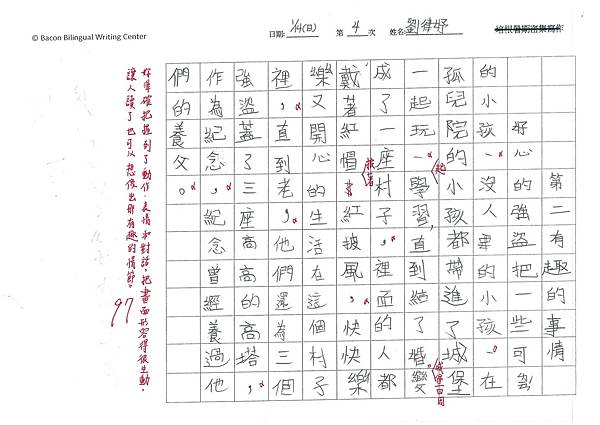 © Bacon Bilingual Writing Center
日期: 1/14(日) 第 4 次 姓名: 劉律妤
培根暑期密集寫作
第二有趣的事情
好心的強盜把一些可
的小孩、沒人要的小孩、在
孤兒院的小孩都帶進了城堡
一起玩。學習,直到結了婚。變
成了一座村子,裡面的人都
戴著紅帽 紅披風,快快樂
樂又開心的生活在這個村子
裡,直到老,他們還為三個
強盜蓋了三座高高的高塔,
作為紀念,紀念曾經養過他
們的養父。
妳準確把握到了動作、表情和對話,把畫面形容得很生動,
讓人讀了也可以想像出那有趣的情節。
97